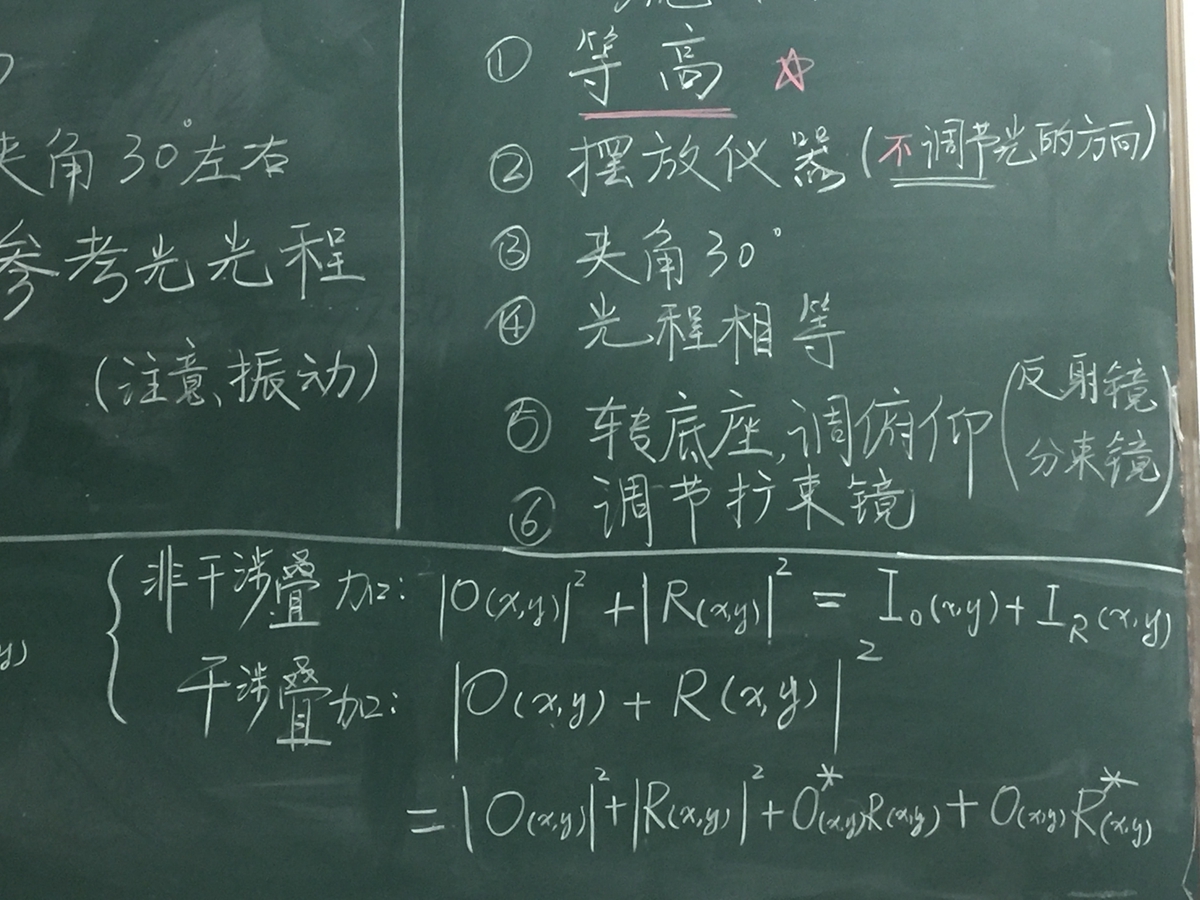 夹角30°左右
参考光光程
(注意、振动)
① 等高 ☆
② 摆放仪器(不调节光的方向)
③ 夹角30°
④ 光程相等
⑤ 转底座,调俯仰(反射镜 分束镜)
⑥ 调节扩束镜
非干涉叠加: |O(x,y)|² + |R(x,y)|² = I₀(x,y) + I_R(x,y)
干涉叠加: |O(x,y) + R(x,y)|²
= |O(x,y)|² + |R(x,y)|² + O*(x,y)R(x,y) + O(x,y)R*(x,y)